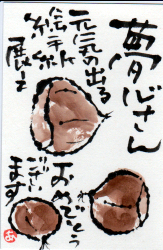 夢心さん
元気の出る
絵手紙
展を
おめでとう
ございます
あ